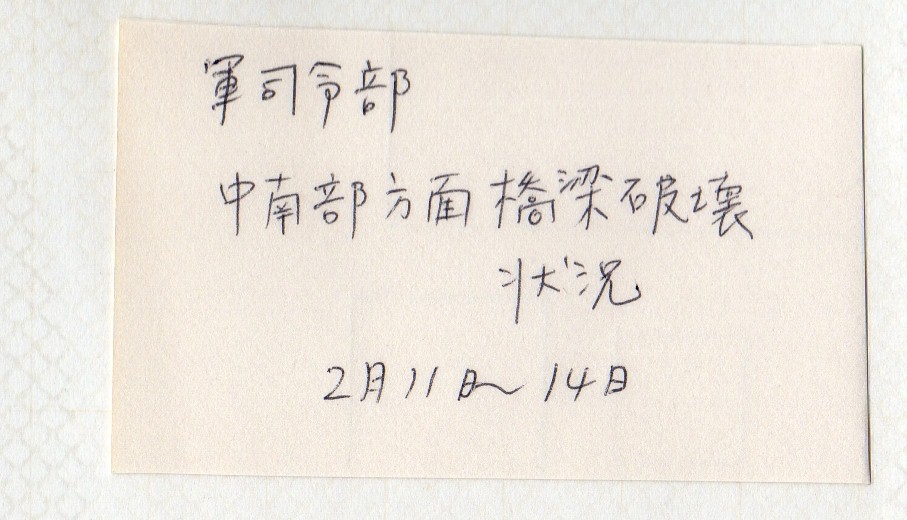 軍司令部
中南部方面橋梁破壊
状況
2月11日〜14日